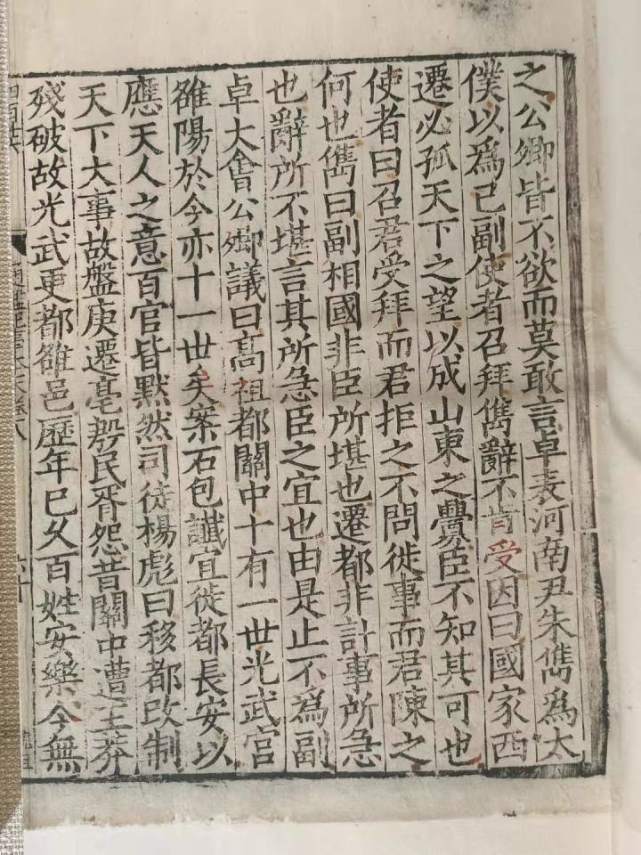 之公卿皆不欲而莫敢言卓表河南尹朱儁為太
僕以為己副使者召拜儁辭不肯受因曰國家西
遷必孤天下之望以成山東之釁臣不知其可也
使者曰召君受拜而君拒之不問徙事而君陳之
何也儁曰副相國非臣所堪也遷都非計事所急
也辭所不堪言其所急臣之宜也由是止不為副
卓大會公卿議曰髙祖都關中十有一世光武宮
雒陽於今亦十一世矣案石包讖宜徙都長安以
應天人之意百官皆默然司徒楊彪曰移都改制
天下大事故盤庚遷亳殷民胥怨昔關中遭王莽
殘破故光武更都雒邑歷年已久百姓安樂今無
通鑑紀事本末卷八